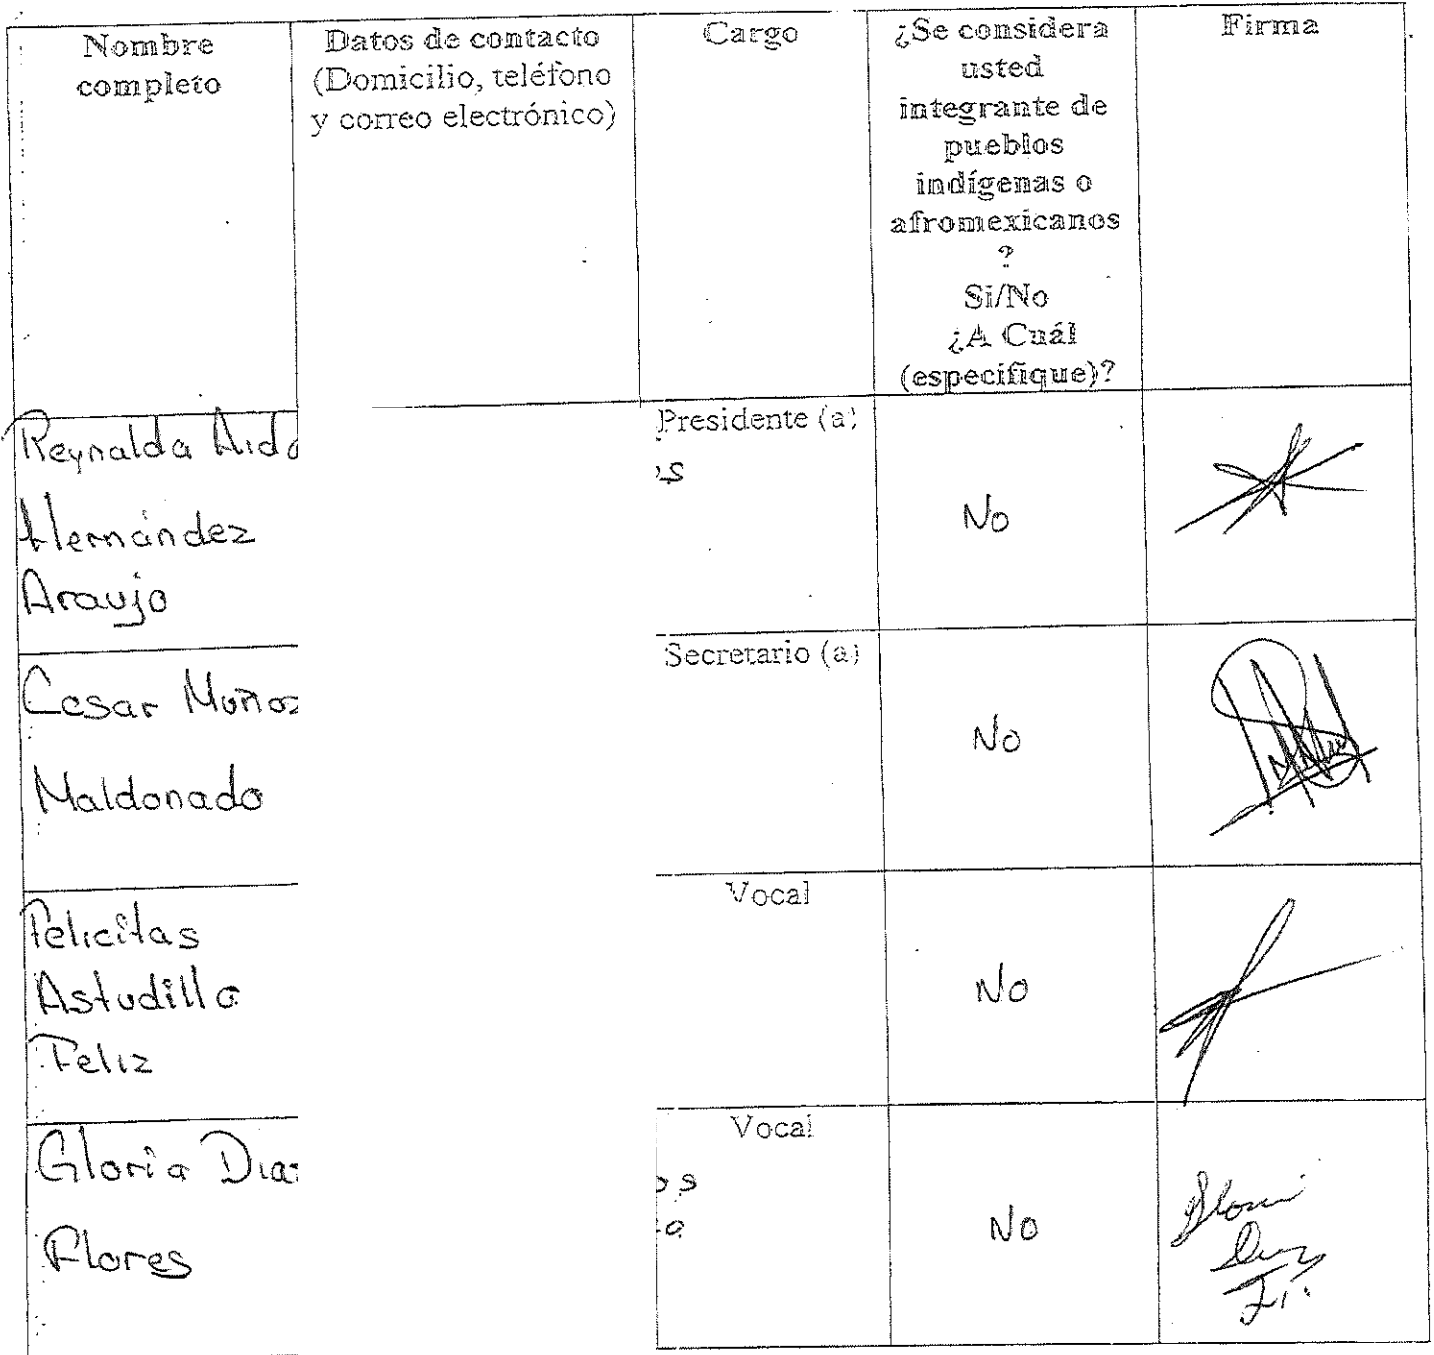 Nombre
completo
Datos de contacto
(Domicilio, teléfono
y correo electrónico)
Cargo
¿Se considera
usted
integrante de
pueblos
indígenas o
afromexicanos
?
Si/No
¿A Cuál
(especifique)?
Firma
Reynalda Aida
Hernández
Araujo
Presidente (a)
No
Cesar Muñoz
Maldonado
Secretario (a)
No
Felicitas
Astudillo
Feliz
Vocal
No
Gloria Diaz
Flores
Vocal
No